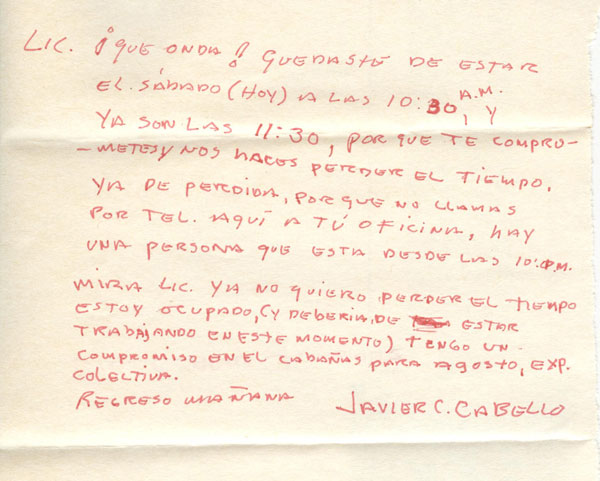 LIC. ¡QUE ONDA! QUEDASTE DE ESTAR
EL. SÁBADO (HOY) A LAS 10:30 A.M., Y
YA SON LAS 11:30, POR QUE TE COMPRO-
-METES Y NOS HACES PERDER EL TIEMPO,
YA DE PERDIDA, PORQUE NO LLAMAS
POR TEL. AQUÍ A TÚ OFICINA, HAY
UNA PERSONA QUE ESTA DESDE LAS 10: P.M.
MIRA LIC. YA NO QUIERO PERDER EL TIEMPO
ESTOY OCUPADO, (Y DEBERIA, DE ESTAR
TRABAJANDO EN ESTE MOMENTO) TENGO UN
COMPROMISO EN EL CABAÑAS PARA AGOSTO, EXP.
COLECTIVA.
REGRESO MAÑANA JAVIER C. CABELLO